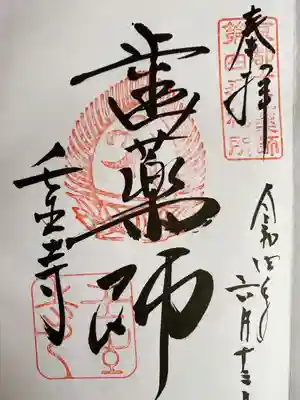 奉拝
令和四年六月十三日
歯薬師
壬生寺